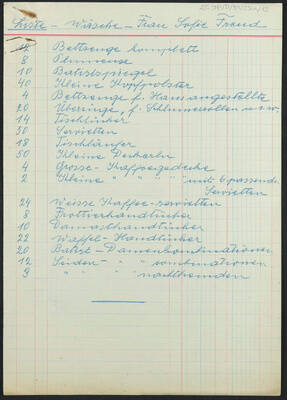 Liste - Wäsche - Frau Sofie Freud
12 Bettzeuge komplett
8 Plumeause
10 Batistspiegel
40 Kleine Kopfpolster
4 Bettzeuge f. Hausangestellte
20 Überzüge f. Schlummerrollen u.s.w.
14 Tischtücher
50 Servietten
18 Tischläufer
50 Kleine Deckerln
4 Grosse - Kaffeegedecke
2 Kleine " " " " mit 6 passend.
Servietten
24 Weisse Kaffee-servietten
8 Frottierhandtücher
10 Damasthandtücher
22 Waffel-Handtücher
20 Batist-Damenkombinationen
12 Seiden- " " kombinationen
9 " " nachthemden